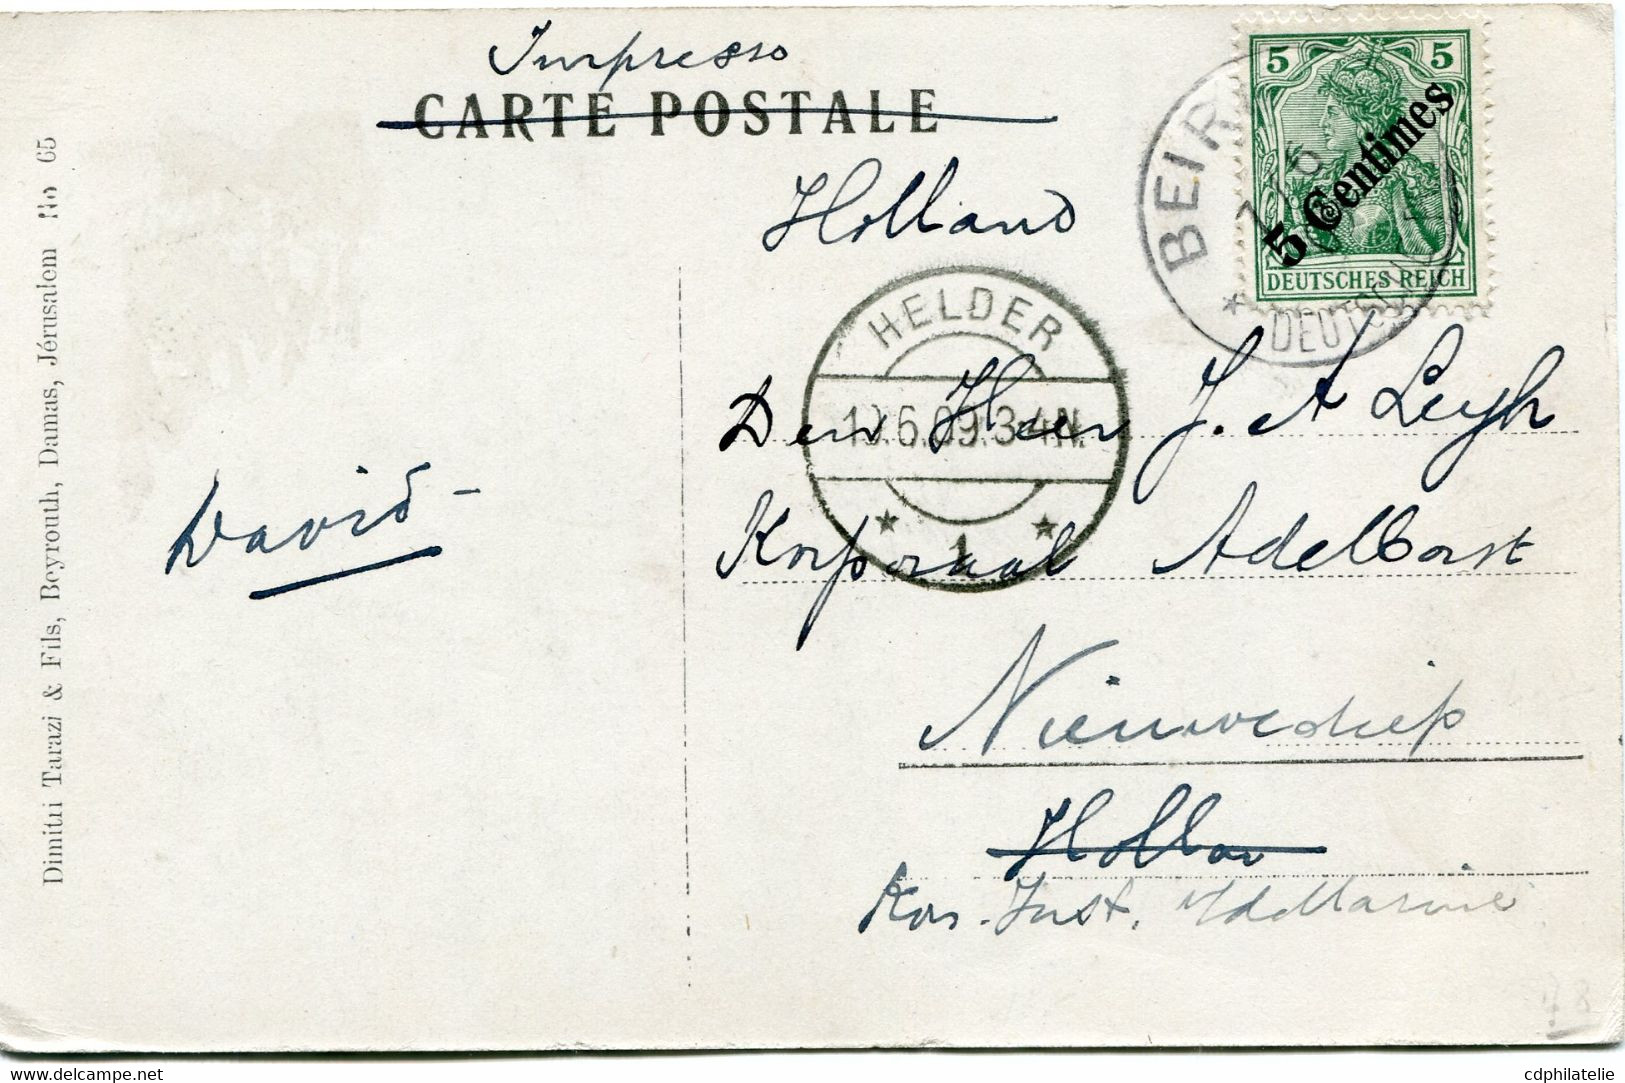 Impresso
CARTE POSTALE
Holland
5 5
5 Centimes
DEUTSCHES REICH
BEIR
7/6
* DEUTSCHE
HELDER
6.09.3-4N.
1
Den Heer J. A Leyh
Korporaal Adelborst
Nieuwediep
David
Kon. Inst. v/d Marine
Dimitri Tarazi & Fils, Beyrouth, Damas, Jérusalem No 65
delcampe.net
cdphilatelie